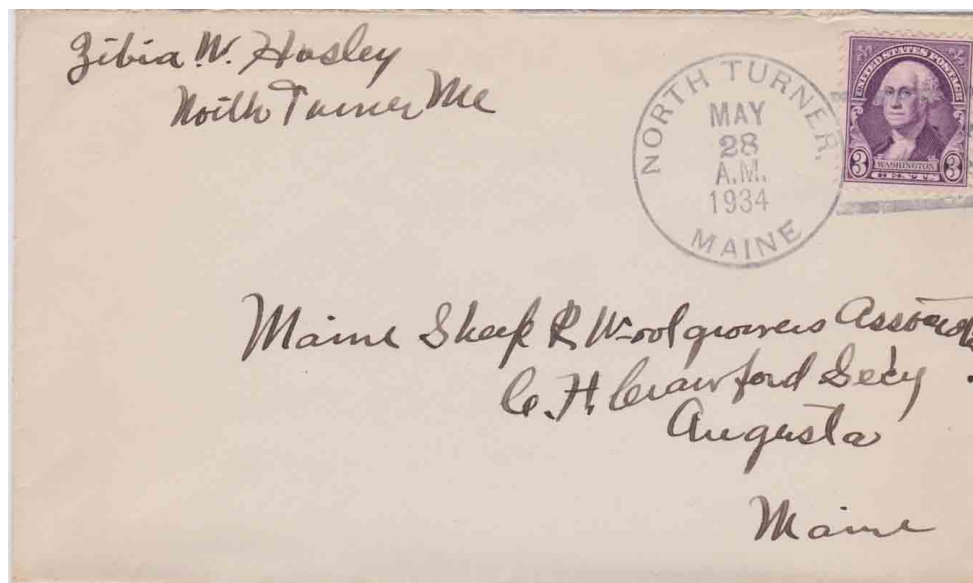 Zibia W. Hasley
North Turner Me
NORTH TURNER,
MAY
28
A.M.
1934
MAINE
UNITED STATES POSTAGE
3 WASHINGTON 3
CENTS
Maine Sheep & Woolgrowers
C. H. Crawford Sec'y
Augusta
Maine